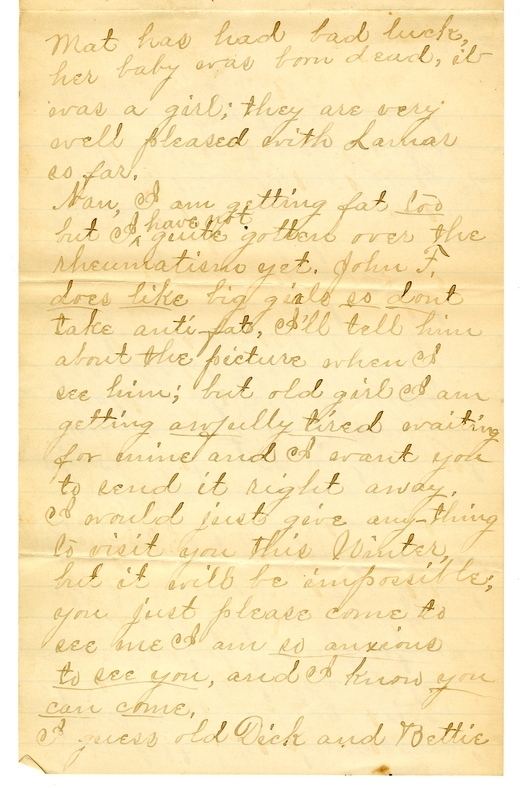 Mat has had bad luck,
her baby was born dead, it
was a girl; they are very
well pleased with Lamar
so far.
Nan, I am getting fat too
but I have not quite gotten over the
rheumatism yet. John F.
does like big girls so dont
take anti-fat, I'll tell him
about the picture when I
see him; but old girl I am
getting awfully tired waiting
for mine and I want you
to send it right away.
I would just give any-thing
to visit you this Winter,
but it will be impossible;
you just please come to
see me I am so anxious
to see you, and I know you
can come.
I guess old Dick and Bettie